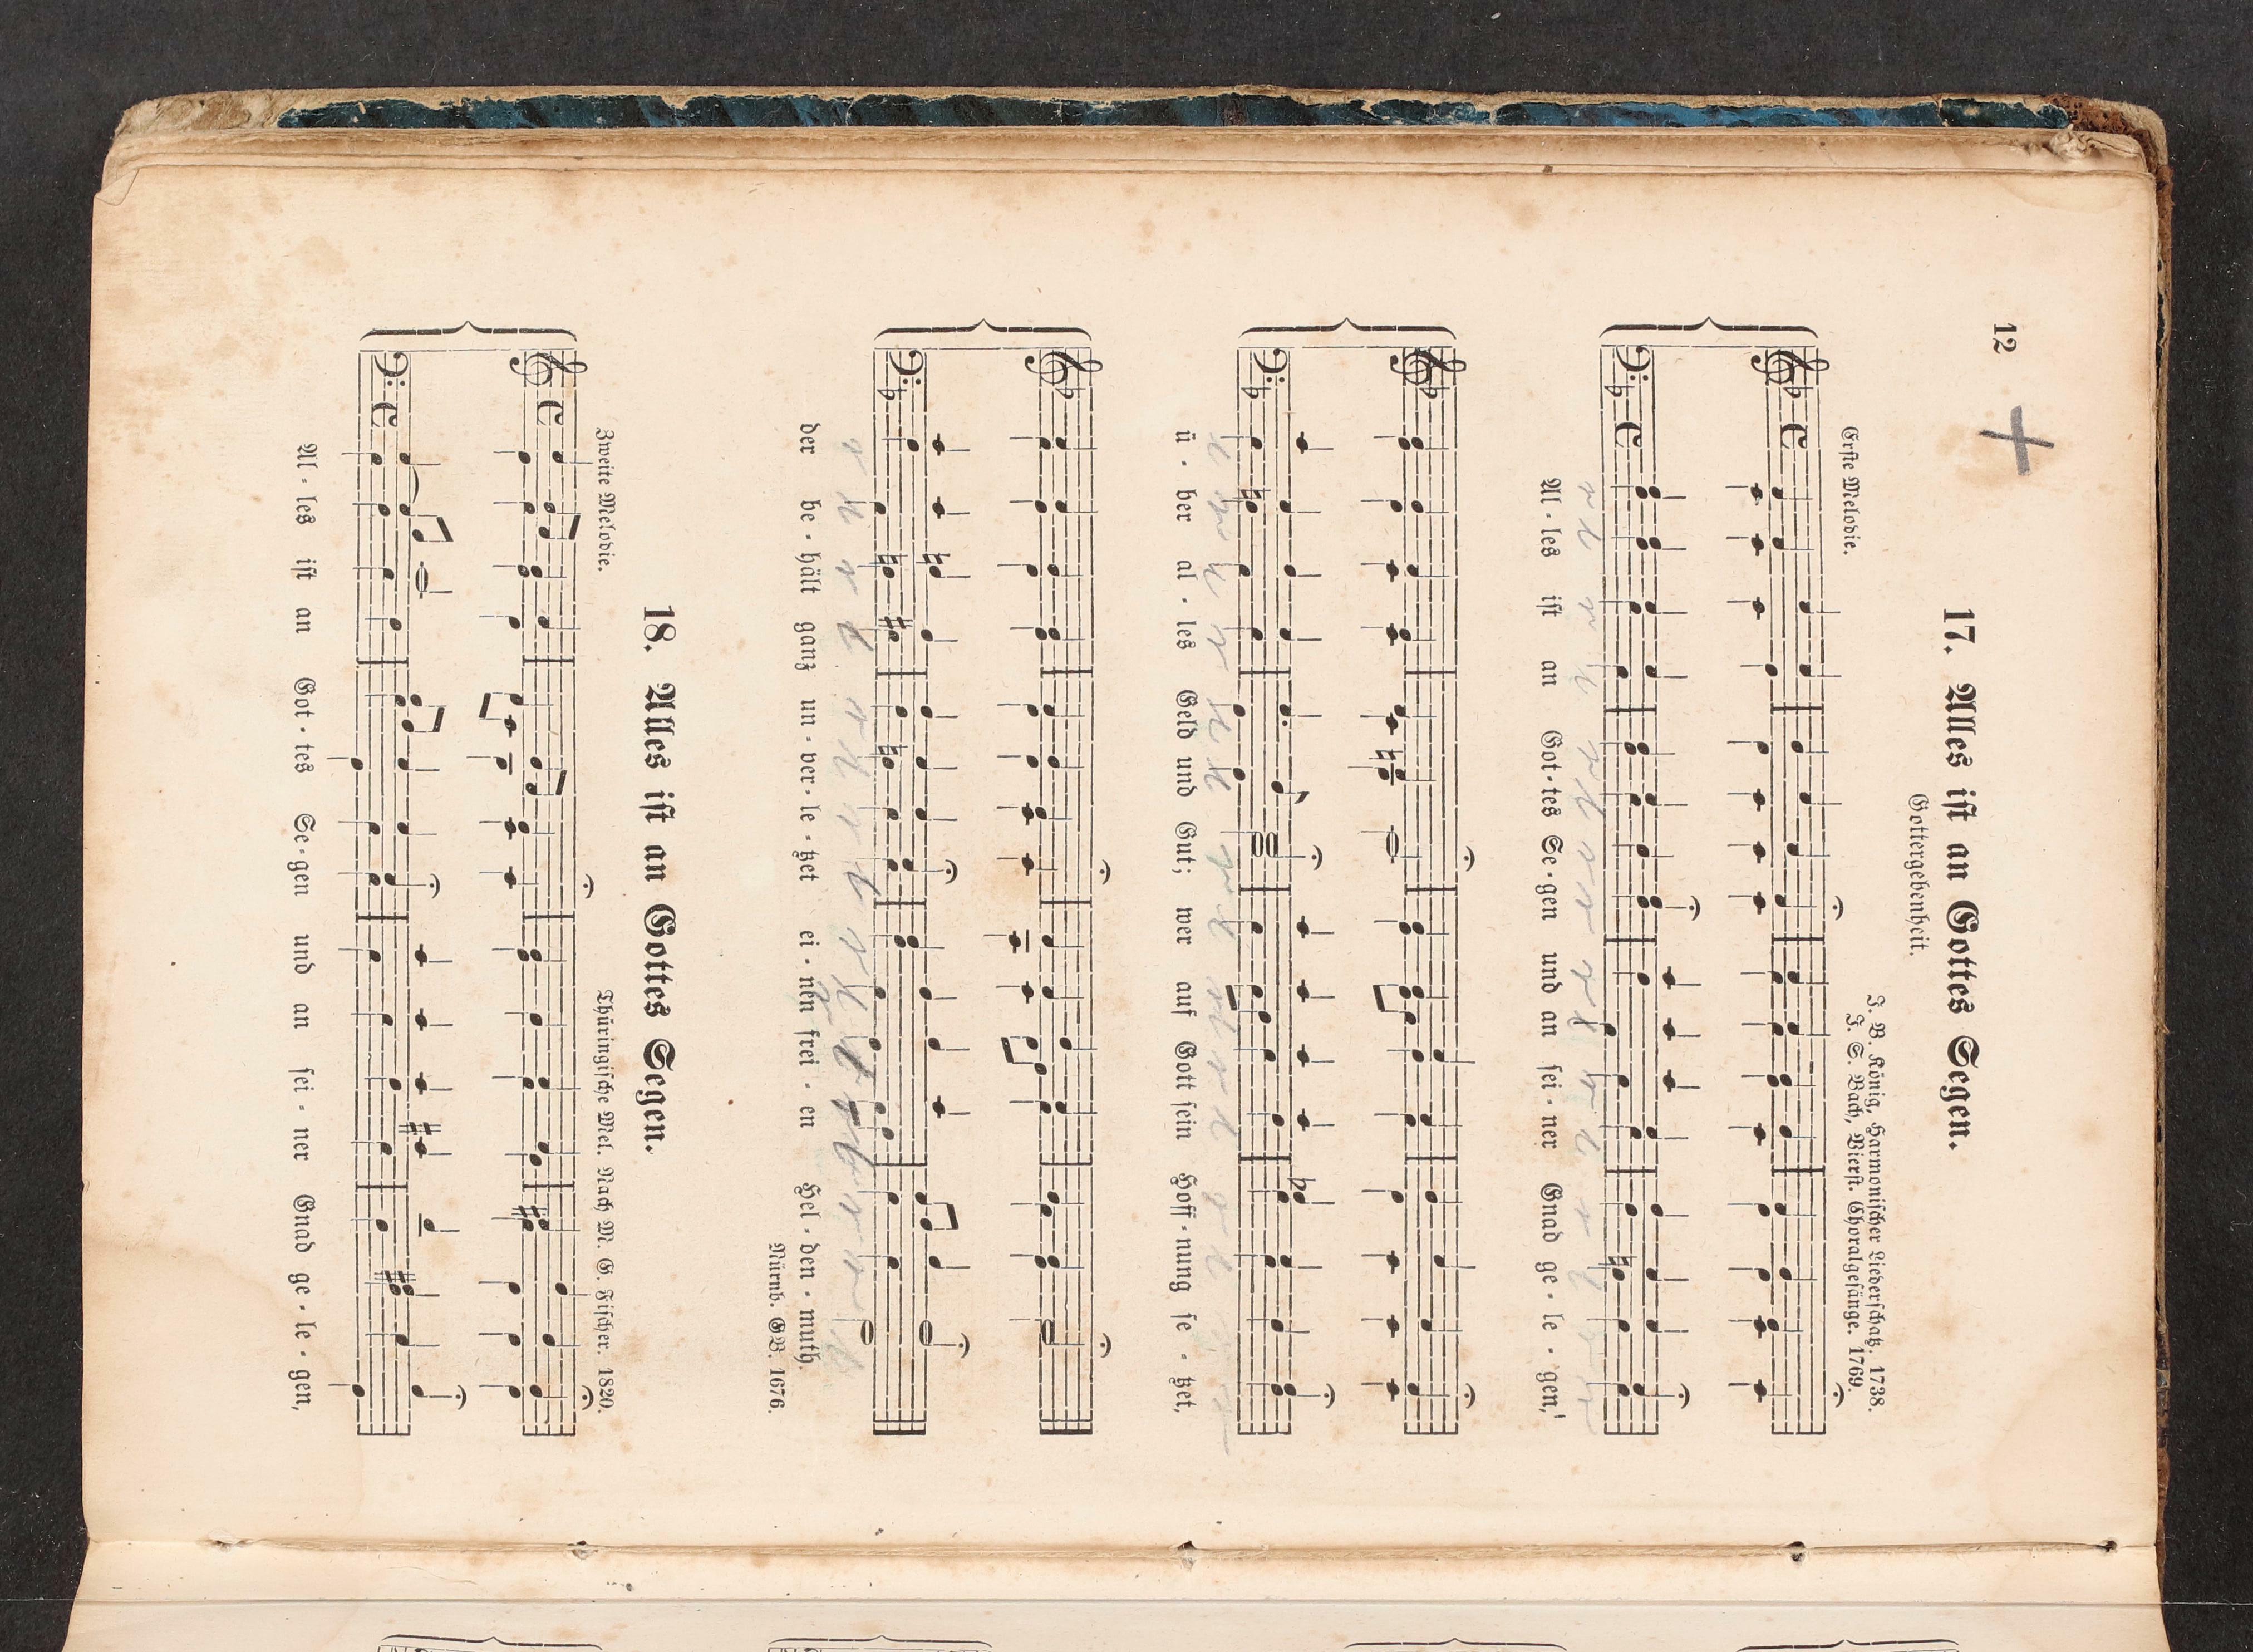 12
17. Alles ist an Gottes Segen.
Gottergebenheit.
Erste Melodie.
J. B. König, Harmonischer Liederschatz. 1738.
J. S. Bach, Vierst. Choralgesänge. 1769.
Al - les ist an Got - tes Se - gen und an sei - ner Gnad ge - le - gen,
ü - ber al - les Geld und Gut; wer auf Gott sein Hoff - nung se - tzet,
der be - hält ganz un - ver - le - tzet ei - nen frei - en Hel - den - muth.
Nürnb. GB. 1676.
18. Alles ist an Gottes Segen.
Zweite Melodie.
Thüringische Mel. Nach M. G. Fischer. 1820.
Al - les ist an Got - tes Se - gen und an sei - ner Gnad ge - le - gen,